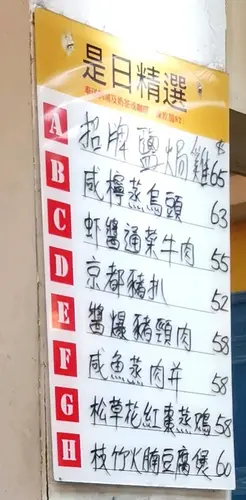 是日精選
A 招牌鹽焗雞 $65
B 咸檸蒸烏頭 63
C 虾醬通菜牛肉 55
D 京都豬扒 52
E 醬爆豬頸肉 58
F 咸魚蒸肉并 58
G 松草花紅棗蒸鴉 58
H 枝竹火腩豆腐煲 60